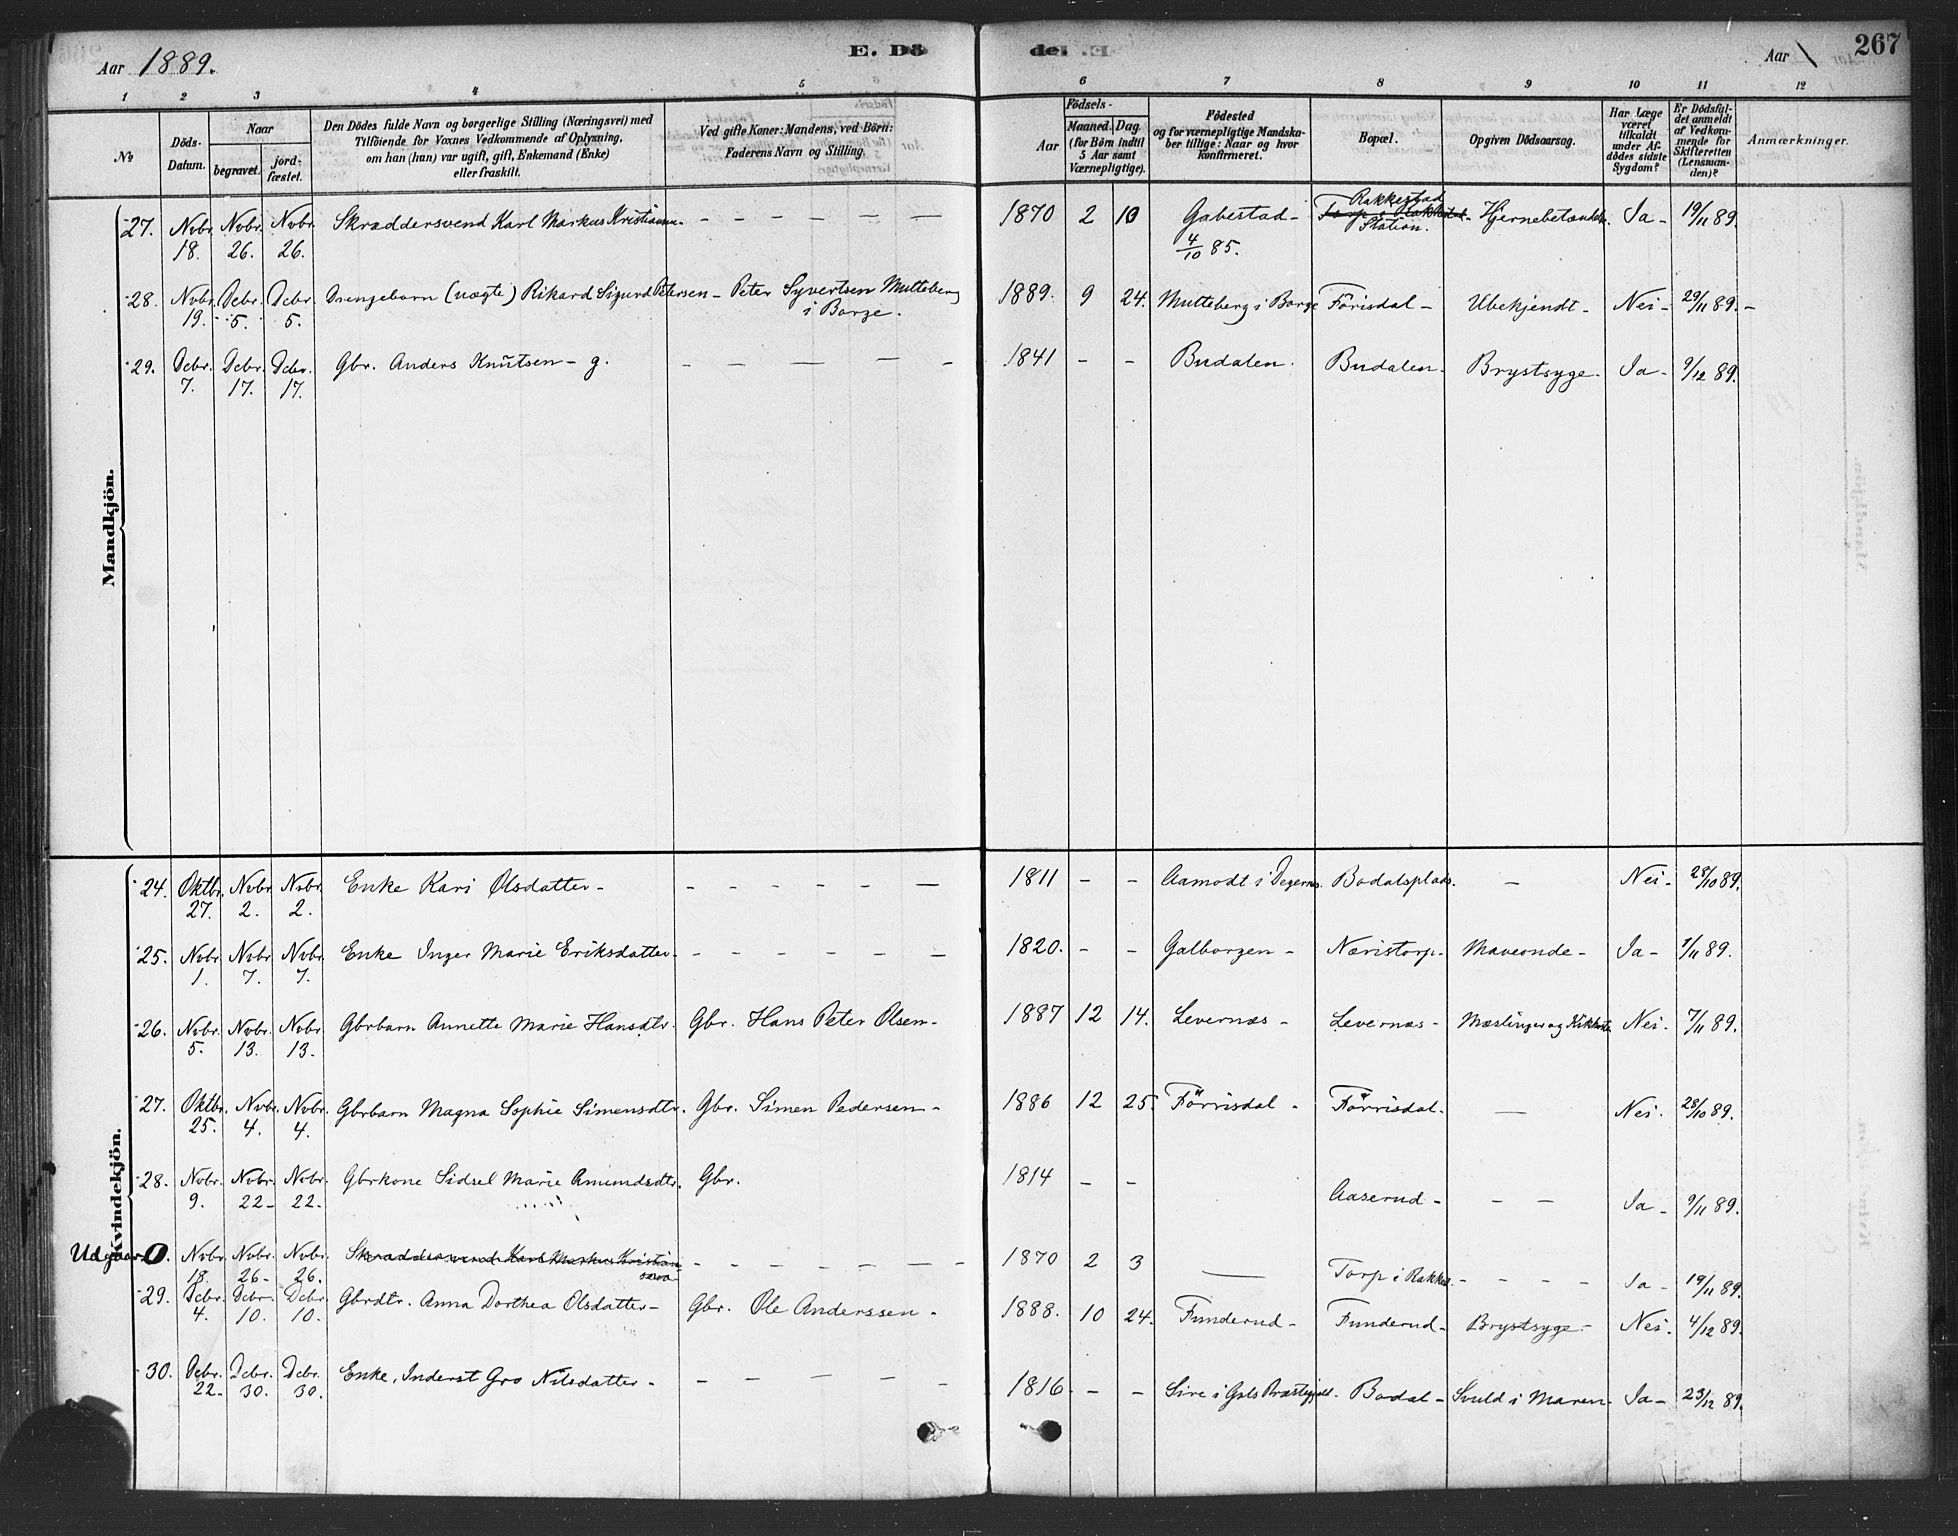 Aar 1889.
E. Dö
del .E
Aar \
267
1 2 3 4 5 6 7 8 9 10 11 12
№
Döds-Datum.
Naar
begravet.
jord-fæstet.
Den Dödes fulde Navn og borgerlige Stilling (Næringsvei) med
Tilföiende for Voxnes Vedkommende af Oplysning,
om han (hun) var ugift, gift, Enkemand (Enke)
eller fraskilt.
Ved gifte Koner: Mandens, ved Börn:
Faderens Navn og Stilling.
Födsels-
Aar
Maaned. Dag.
(for Börn indtil
5 Aar samt
Værnepligtige).
Födested
og for værnepligtige Mandska-
ber tillige: Naar og hvor
konfirmeret.
Bopæl.
Opgiven Dödsaarsag.
Har Læge
været
tilkaldt
under Af-
dödes sidste
Sygdom?
Er Dödsfal-
det anmeldt
af Vedkom-
mende for
Skifteretten
(Lensman-
den)?
Anmærkninger.
Mandkjön.
27. Nvbr. 18. Nvbr. 26. Nvbr. 26. Skræddersvend Karl Markus Kristiansen - - - - - - 1870 2 10 Gabestad - 4/10 85. Rakkestad Station. Hjernebetændelse. Ja - 19/11 89.
28. Nvbr. 19. Decbr. 5. Decbr. 5. Drengebarn (uægte) Rikard Sigurd Petersen - Peter Syvertsen Mutteberg i Borge. 1889. 9 24. Mutteberg i Borge Förisdal - Ubekjendt - Nei - 29/11 89. -
29. Dcbr. 7. Dcbr. 17. Dcbr. 17. Gbr. Anders Knutsen - g. - - - - - 1841 - - Budalen. Budalen. Brystsyge - Ja - 9/12 89.
Kvindekjön.
24. Oktbr. 27. Nvbr. 2. Nvbr. 2. Enke Kari Olsdatter - - - - - - - 1811 - - Aamodt i Degernes. Bodalsplads. - Nei - 28/10 89.
25. Nvbr. 1. Nvbr. 7. Nvbr. 7. Enke Inger Marie Eriksdatter - - - - - - - 1820. - - Galborgen - Næristorp - Maveonde - Ja - 1/11 89.
26. Nvbr. 5. Nvbr. 13. Nvbr. 13. Gbrbarn Annette Marie Hansdtr. Gbr. Hans Peter Olsen - 1887 12 14. Levernæs - Levernæs - Mæslinger og Kikhoste Nei. 7/11 89.
27. Oktbr. 25. Nvbr. 4. Nvbr. 4. Gbrbarn Magna Sophie Simensdtr. Gbr. Simen Pedersen - 1886 12 25. Förrisdal - Förrisdal. - Nei. 28/10 89.
28. Nvbr. 9. Nvbr. 22 - Nvbr. 22. Gbrkone Sidsel Marie Amundsdtr. Gbr. 1814 - - Aaserud - - - Ja - 9/11 89.
Udgaar 0. Nvbr. 18. Nvbr. 26 - Nvbr. 26. Skræddersvend Karl Markus Kristiansen - - - - - - 1870 2 3 - Torp i Rakkes. - - - - Ja - 19/11 89.
29. Dcbr. 4. Dcbr. 10. Dcbr. 10. Gbrdtr. Anna Dorthea Olsdatter - Gbr. Ole Anderssen - 1888. 10 24. Funderud - Funderud - Brystsyge - Nei. 4/12 89.
30. Dcbr. 22 - Dcbr. 30. Dcbr. 30. Enke, Inderst Gro Nilsdatter - - - - - - 1816. - - Sire i Gols Præstegjeld - Bodal - Svuld i Maven - Ja - 23/12 89.